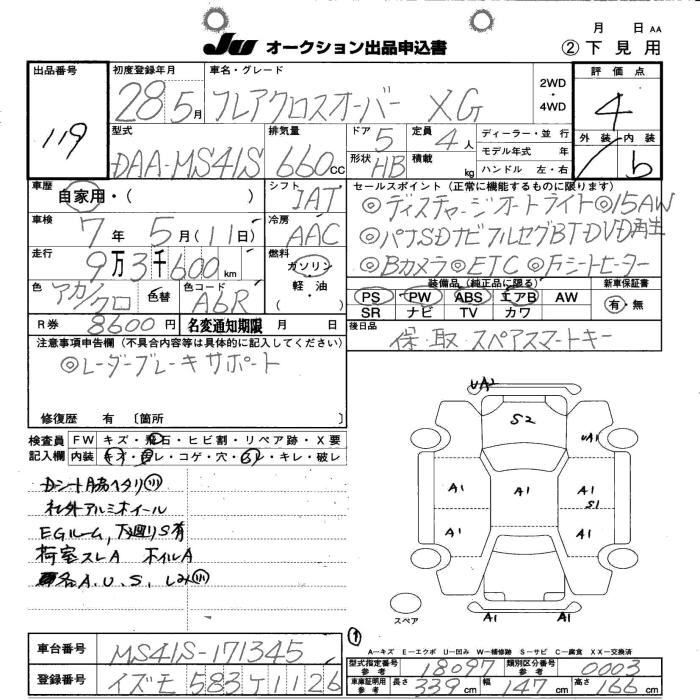 月 日 AA
JU オークション出品申込書 ② 下見用
出品番号 初度登録年月 車名・グレード 2WD・4WD 評価点
119 28 5月 フレアクロスオーバー XG 4
型式 排気量 ドア 定員 ディーラー・並行 外装 内装
DAA-MS41S 660cc 5 4人 モデル年式 年 b
形状 HB 積載 kg ハンドル 左・右
車歴 自家用・( ) シフト IAT セールスポイント (正常に機能するものに限ります)
◎ディスチャージオートライト◎15AW
車検 7年 5月(11日) 冷房 AAC
◎パナSDナビフルセグBT・DVD再生
走行 9万3千600km 燃料 ガソリン
軽・油
( )
◎Bカメラ◎ETC◎Fシートヒーター
色 アカ/クロ 色替 色コード A6R
装備品(純正品に限る) 新車保証書
PS PW ABS エアB AW 有・無
SR ナビ TV カワ
R券 8600円 名変通知期限 月 日
後日品 保・取・スペアスマートキー
注意事項申告欄(不具合内容等は具体的に記入してください)
◎レーダーブレーキサポート
修復歴 有 〔箇所 〕
検査員記入欄 FW キズ・飛石・ヒビ割・リペア跡・X要
内装 キズ・汚レ・コゲ・穴・・キレ・破レ
Dシート肩ヘタリ
社外アルミホイール
EGルーム,下廻りS有
荷室スレA ホイルA
A.U.S.しみ
UA2
S2
UA1
A1 A1 A1
S1
A1 A1
スペア
A1 A1
A−キズ E−エクボ U−凹み W−補修跡 S−サビ C−腐食 XX−交換済
車台番号 MS41S-171345
型式指定番号 参考 18097 類別区分番号 参考 0003
登録番号 イズモ 583 ケ1126
車庫証明用 参考 長さ 339cm 幅 147cm 高さ 166cm